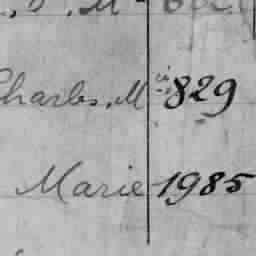 Charles, M 829
Marie 1985